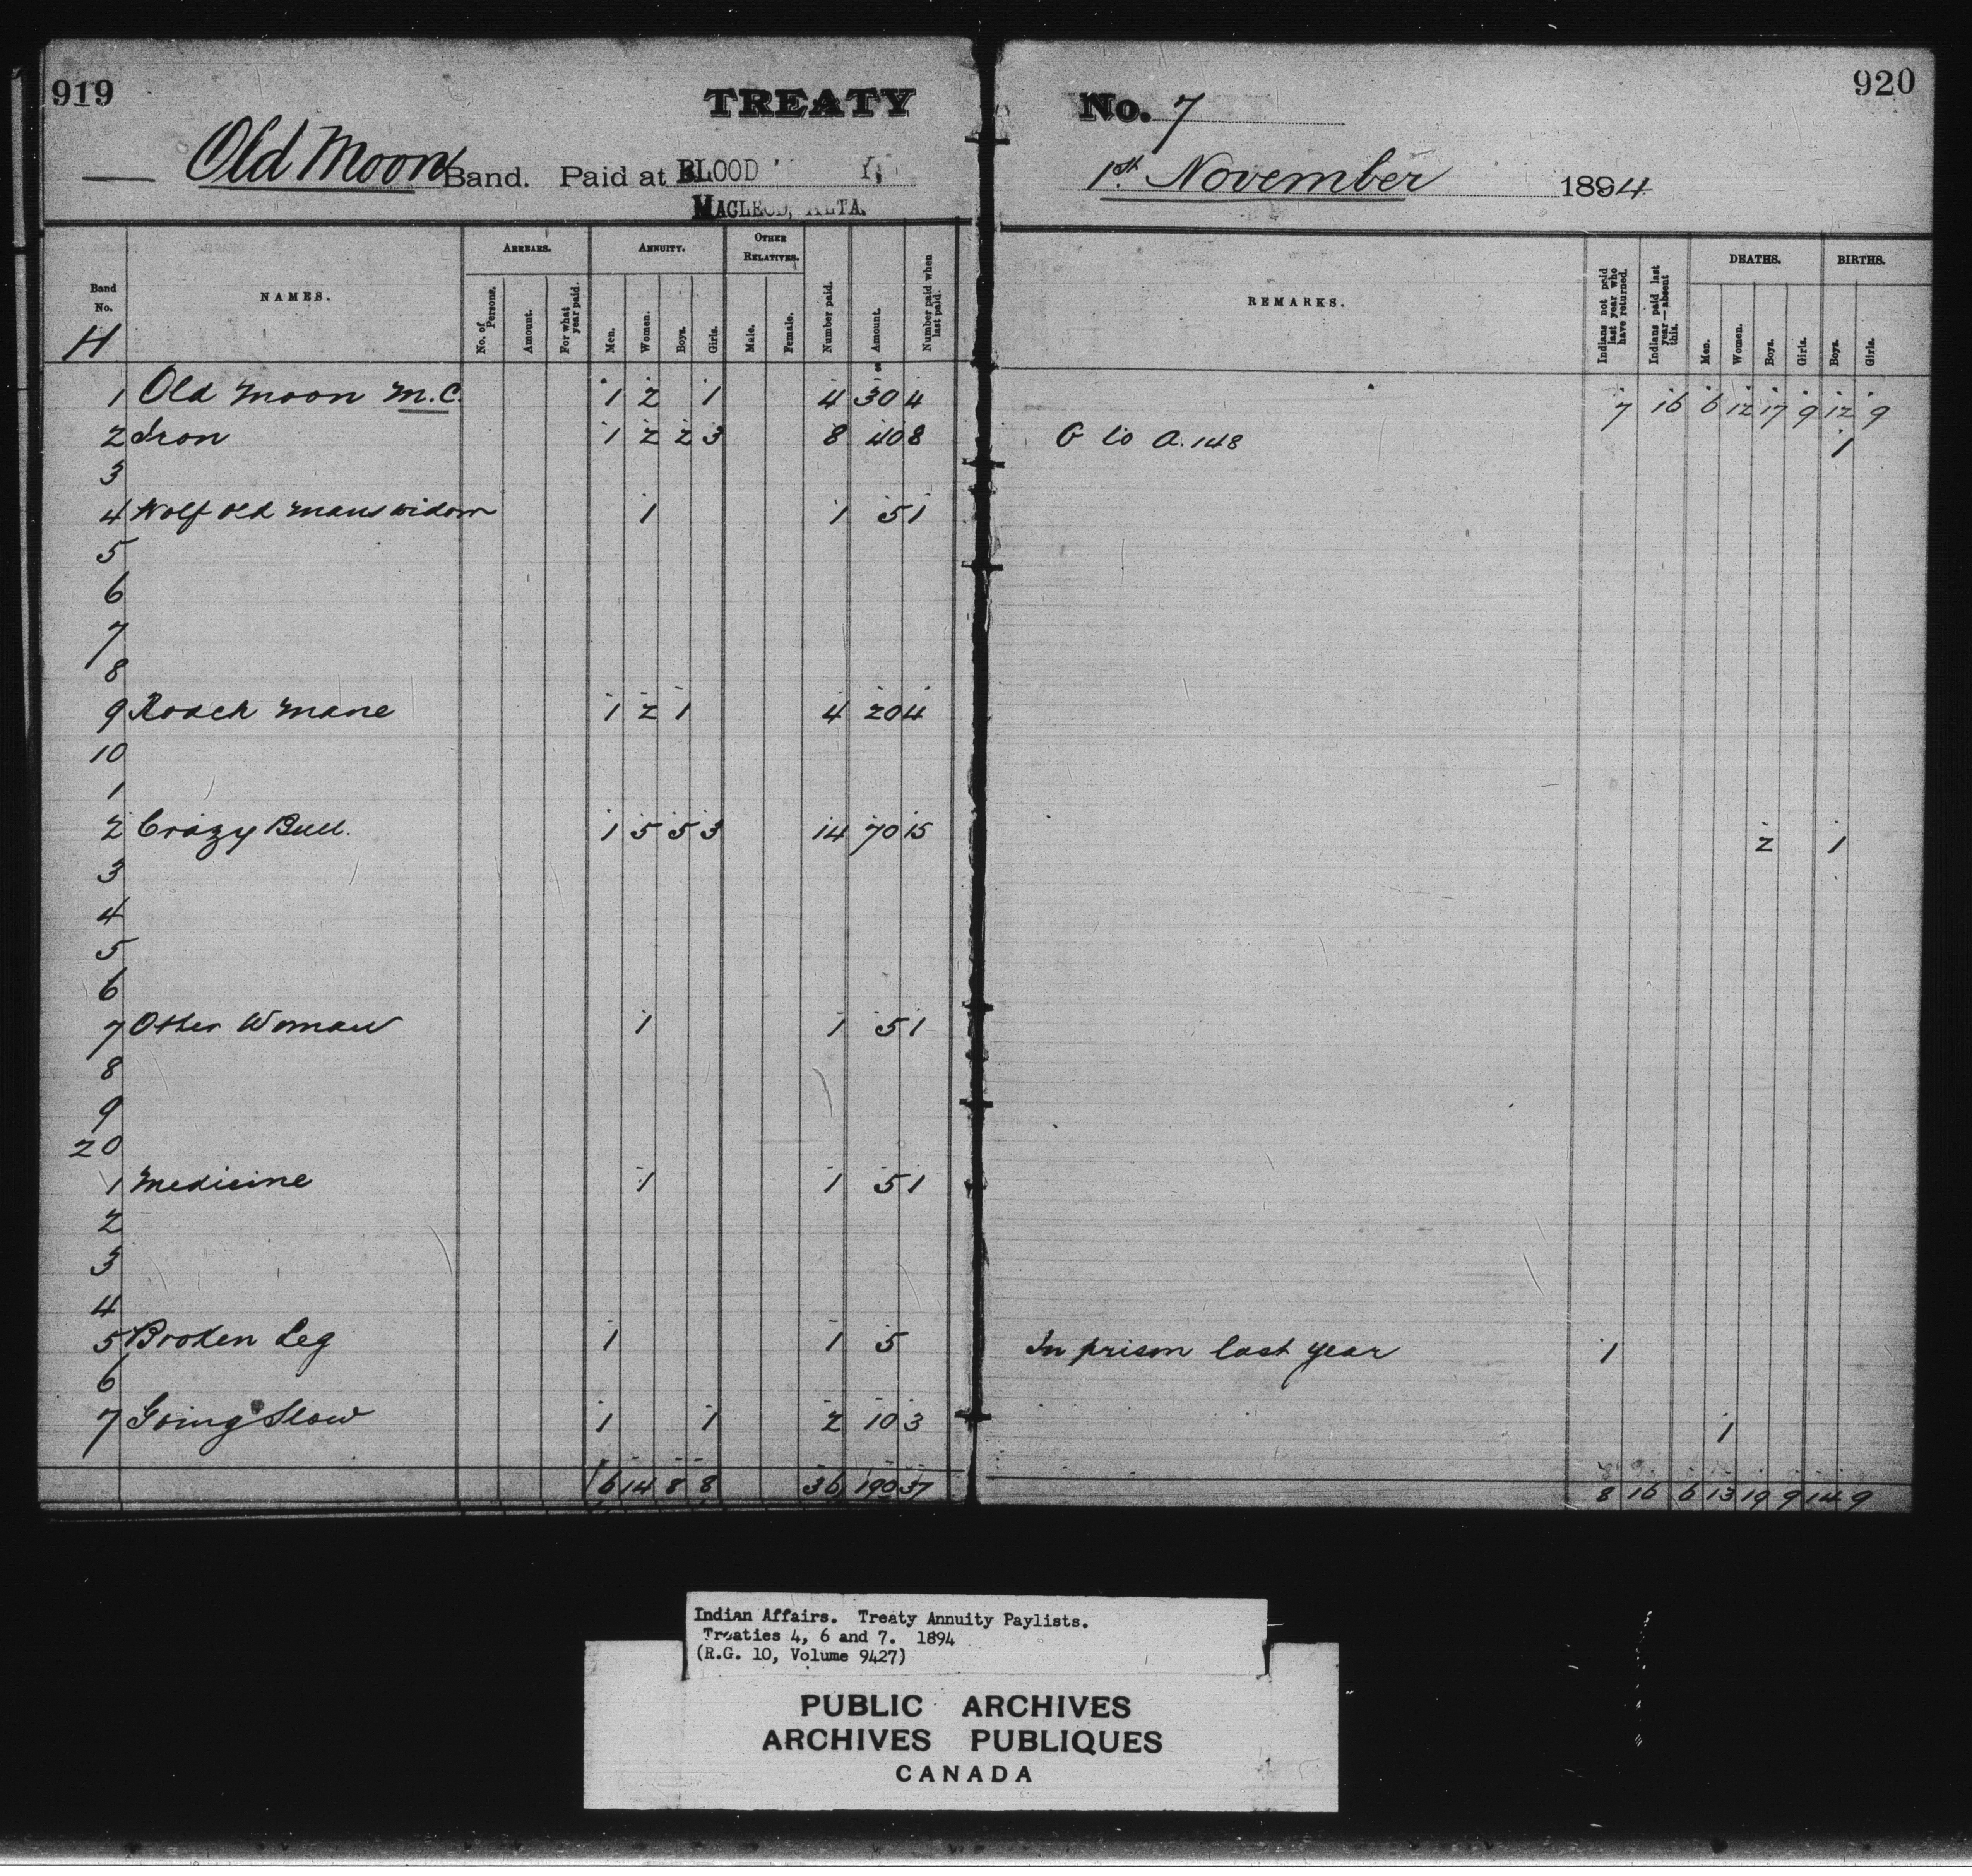 919
TREATY
Old Moon Band. Paid at BLOOD
MACLEOD, ALTA.
Band No. H
NAMES.
ARREARS. ANNUITY. OTHER RELATIVES.
No. of Persons. Amount. For what year paid. Men. Women. Boys. Girls. Male. Female. Number paid. Amount. Number paid when last paid.
1 Old Moon M.C. 1 2 1 4 30 4
2 Iron 1 2 2 3 8 40 8
3
4 Wolf Old Mans widow 1 1 5 1
5
6
7
8
9 Roach Mane 1 2 1 4 20 4
10
1
2 Crazy Bull. 1 5 5 3 14 70 15
3
4
5
6
7 Other Woman 1 1 5 1
8
9
20
1 Medicine 1 1 5 1
2
3
4
5 Broken Leg 1 1 5
6
7 Going Slow 1 1 2 10 3
6 14 8 8 36 190 37
920
No. 7
1st November 1894
REMARKS.
Indians not paid last year who have returned. Indians paid last year—absent this.
DEATHS. BIRTHS.
Men. Women. Boys. Girls. Boys. Girls.
7 16 6 12 17 9 12 9
G to A. 148 1
2 1
In prison last year 1
1
8 16 6 13 19 9 14 9
Indian Affairs. Treaty Annuity Paylists.
Treaties 4, 6 and 7. 1894
(R.G. 10, Volume 9427)
PUBLIC ARCHIVES
ARCHIVES PUBLIQUES
CANADA